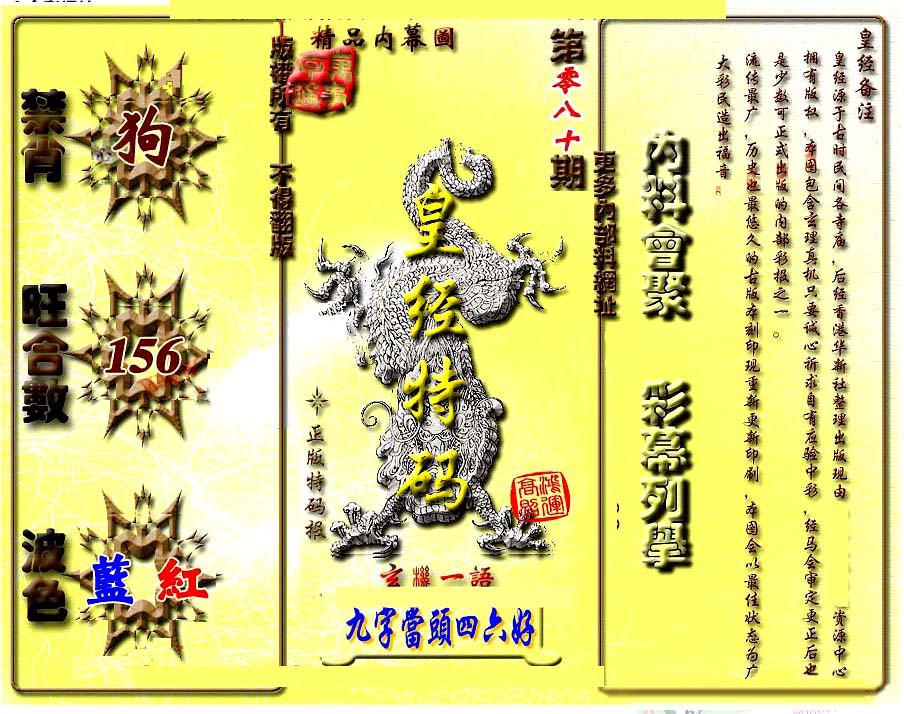 皇经备注
皇经源于古时民间各寺庙，后经香港华新社整理出版现由
资源中心
拥有版权，本图包含玄理真机只要诚心祈求自有应验中彩，经马会审定更正后也
是少数可正式出版的内部彩报之一。
流传最广，历史也最悠久的古版本刻印现重新更新印刷，本图会以最佳状态为广
大彩民造出福音
内料會聚
彩幕列舉
更多內部料網址
第零八十期
精品内幕圖
皇经特码
正版特码报
鴻運高照
玄機一語
九字當頭四六好
版權所有
不得翻版
禁肖
狗
旺合數
156
波色
藍
紅